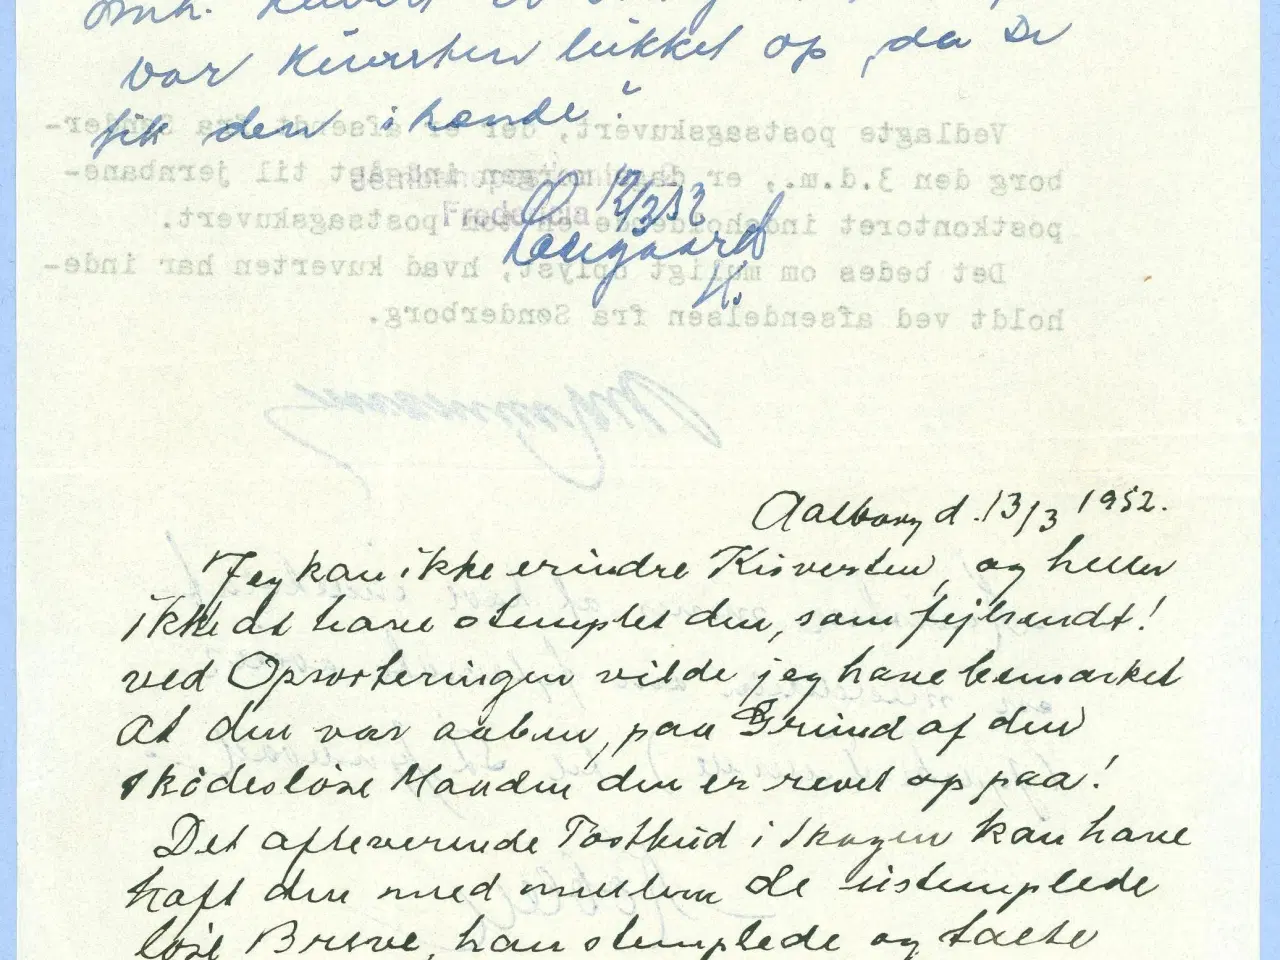 var Kuverten lukket op, da De
fik den i hænde?
12/3 52
Vedlagte postsagskuvert, der er afsendt fra Sønder-
borg den 3.d.m., er dags morgen indgået til jernbane-
postkontoret indeholdende en postsagskuvert.
Det bedes om muligt oplyst, hvad kuverten har inde-
holdt ved afsendelsen fra Sønderborg.
Fredericia
Aalborg d. 13/3 1952.
Jeg kan ikke erindre Kuverten, og heller
ikke at have stemplet den, som fejlsendt!
ved Opsorteringen vilde jeg have bemærket
at den var aaben, paa Grund af den
skødesløse Maaden den er revet op paa!
Det afleverende Postbud i Skagen kan have
haft den med mellem de ustemplede
løse Breve, han stemplede og talte